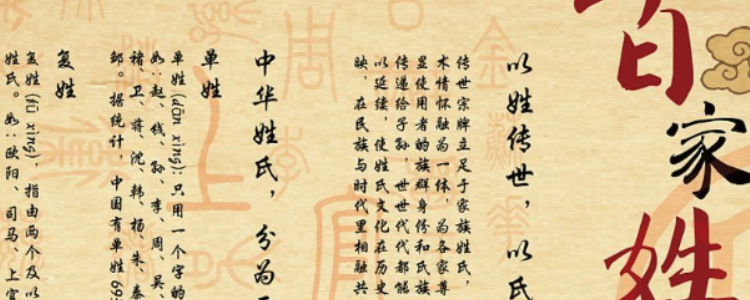 百家姓
以姓传世，以氏
传世宗牌立足于家族姓氏，
术情怀融为一体，为各家尊
显使用者的族群身份和氏族
传递给子孙，世世代代都能
以延续，使姓氏文化在历史
映，在民族与时代里相融共
中华姓氏，分为
单姓
单姓 (dān xìng)：只用一个字的
如：赵、钱、孙、李、周、吴、
褚、卫、蒋、沈、韩、杨、朱、秦
邹。据统计，中国有单姓69
复姓
复姓 (fù xìng)，指由两个及以
姓氏。如：欧阳、司马、上官